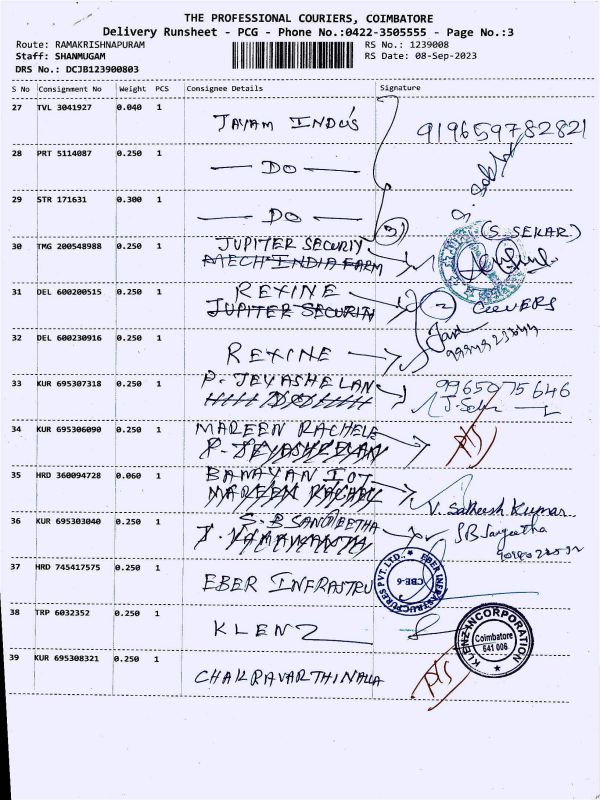 THE PROFESSIONAL COURIERS, COIMBATORE
Delivery Runsheet - PCG - Phone No.:0422-3505555 - Page No.:3
Route: RAMAKRISHNAPURAM
RS No.: 1239008
Staff: SHANMUGAM
RS Date: 08-Sep-2023
DRS No.: DCJB123900803
S No Consignment No Weight PCS Consignee Details Signature
27 TVL 3041927 0.040 1 JAYAM INDUS 9196597 82821
28 PRT 5114087 0.250 1 — DO —
29 STR 171631 0.300 1 — DO — 3
(S. SEKAR)
30 TMG 200548988 0.250 1 JUPITER SECURIY
MECH INDIA FARM
31 DEL 600200515 0.250 1 REXINE 2 COVERS
JUPITER SECURITY
32 DEL 600230916 0.250 1 REXINE
33 KUR 695307318 0.250 1 P. JEYASHELAN 9965075646
34 KUR 695306090 0.250 1 MAREEN RACHEL P/S
P. JEYASHEELAN
35 HRD 360094728 0.060 1 BANAYAN IOT
MAREEN RACHEL V. Satheesh Kumar
36 KUR 695303040 0.250 1 S.B SANGEETHA S B Sangeetha
37 HRD 745417575 0.250 1 EBER INFRASTRU
EBER INFRASTRUCTURES PVT. LTD.,
CBE-6
38 TRP 6032352 0.250 1 KLENZ
KLENZ INCORPORATION
Coimbatore
641 006
39 KUR 695308321 0.250 1 CHAKRAVARTHINALLA P/S